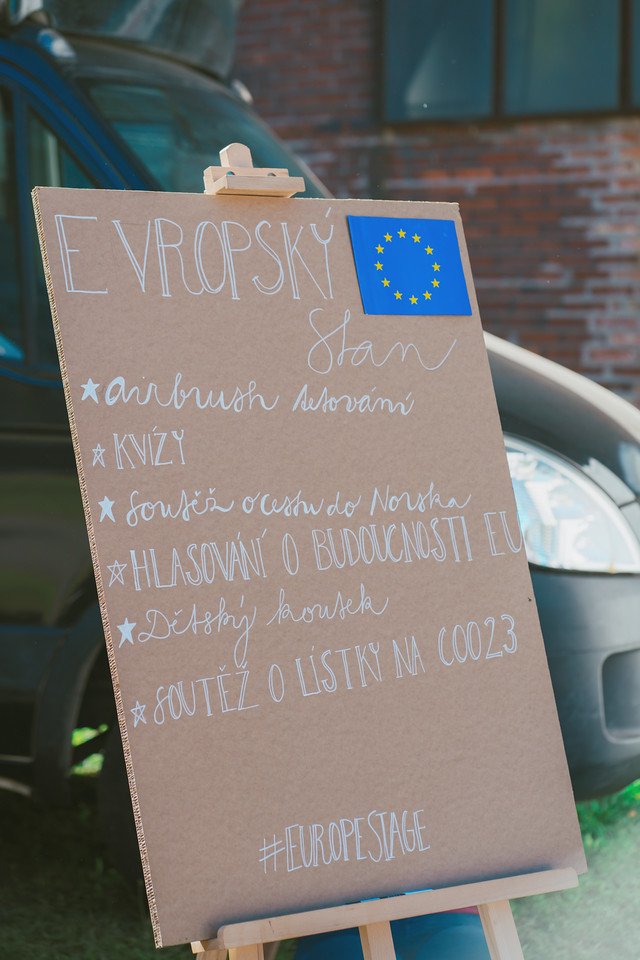 EVROPSKÝ
Stan
airbrush tetování
KVÍZY
Soutěž o cestu do Norska
HLASOVÁNÍ O BUDOUCNOSTI EU
Dětský koutek
SOUTĚŽ O LÍSTKY NA COO23
#EUROPESTAGE